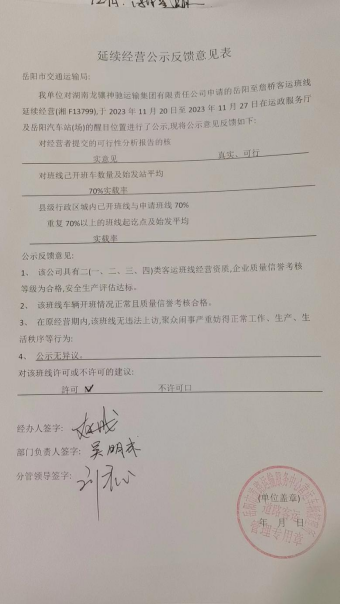 延续经营公示反馈意见表
岳阳市交通运输局:
我单位对湖南龙骧神驰运输集团有限责任公司申请的岳阳至詹桥客运班线
延续经营(湘 F13799),于 2023 年 11 月 20日至 2023 年 11 月 27日在运政服务厅
及岳阳汽车站(场)的醒目位置进行了公示,现将公示意见反馈如下:
对经营者提交的可行性分析报告的核
实意见 真实、可行
对班线已开班车数量及始发站平均
70%实载率
县级行政区域内已开班线与申请班线 70%
重复 70%以上的班线起讫点及始发平均
实载率
公示反馈意见:
1、 该公司具有二(一、二、三、四)类客运班线经营资质,企业质量信誉考核
等级为合格,安全生产评估达标。
2、 该班线车辆开班情况正常且质量信誉考核合格。
3、 在原经营期内,该班线无违法上访,聚众闹事严重妨碍正常工作、生产、生
活秩序等行为;
4、 公示无异议。
对该班线许可或不许可的建议:
许可 ✓ 不许可口
经办人签字:
部门负责人签字: 吴明
分管领导签字: 刘
(单位盖章)
年 月 日
管理专用章